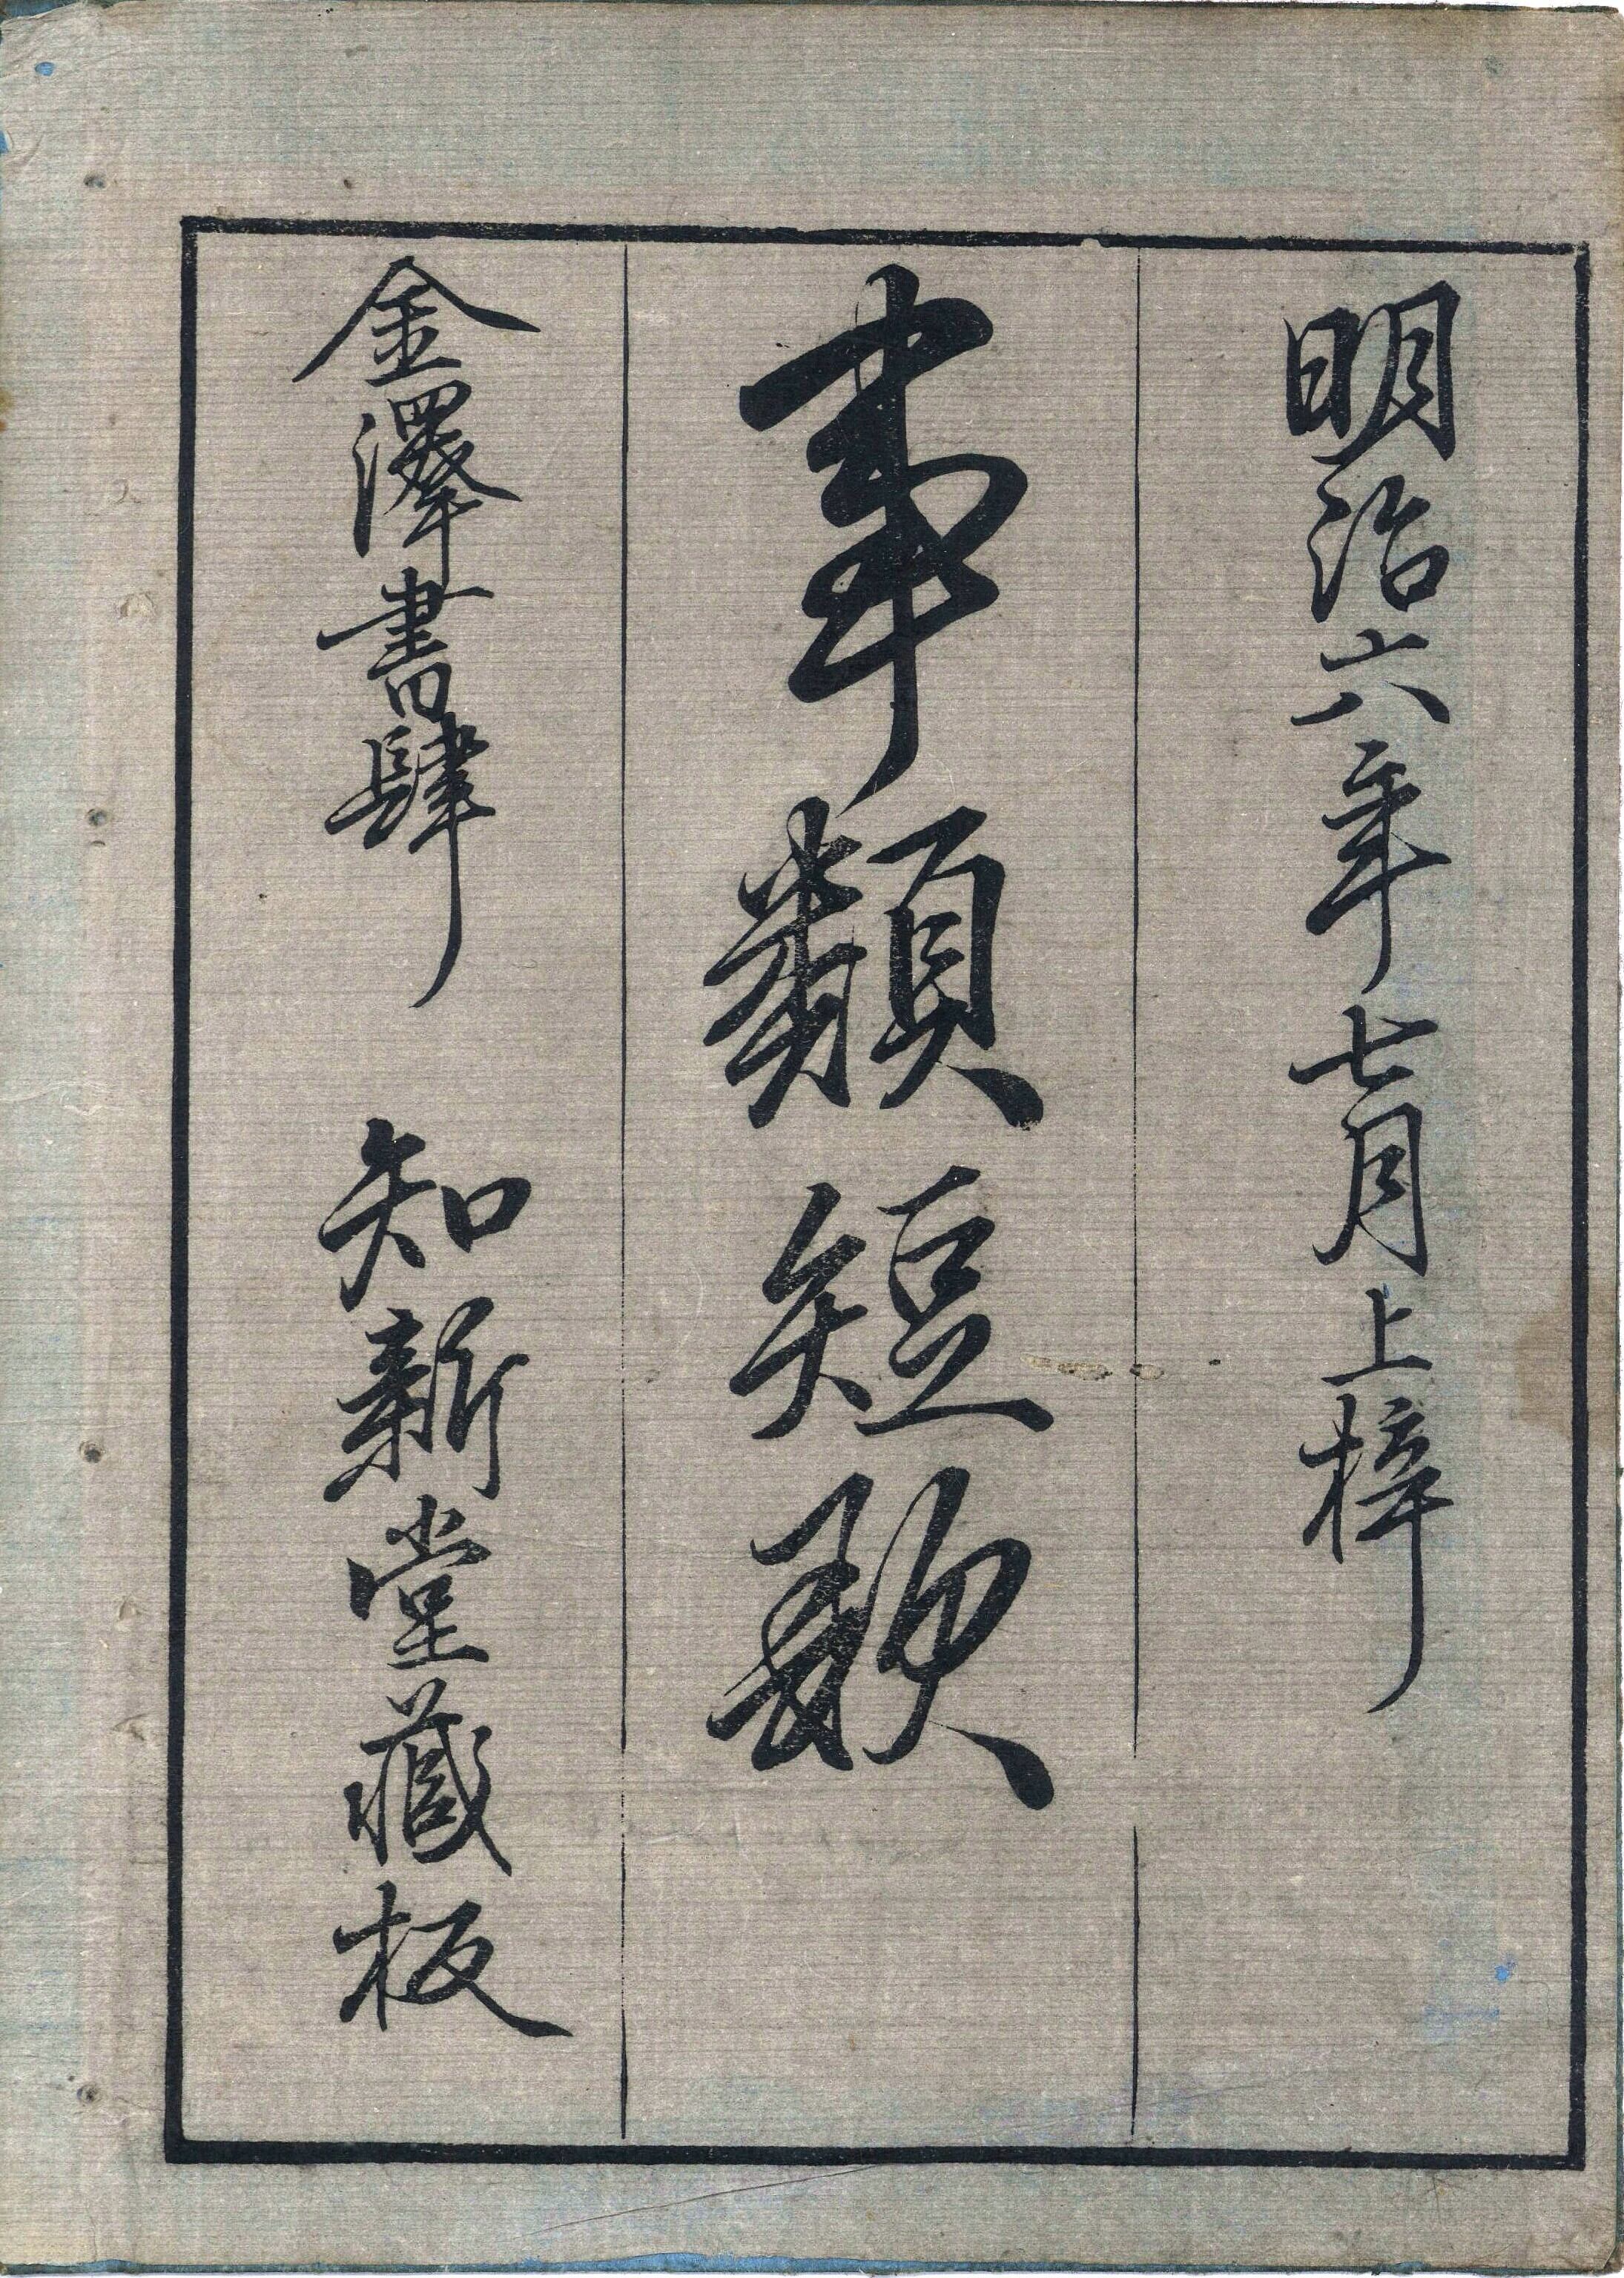 明治六年七月上梓
事類短歌
金澤書肆 知新堂藏板